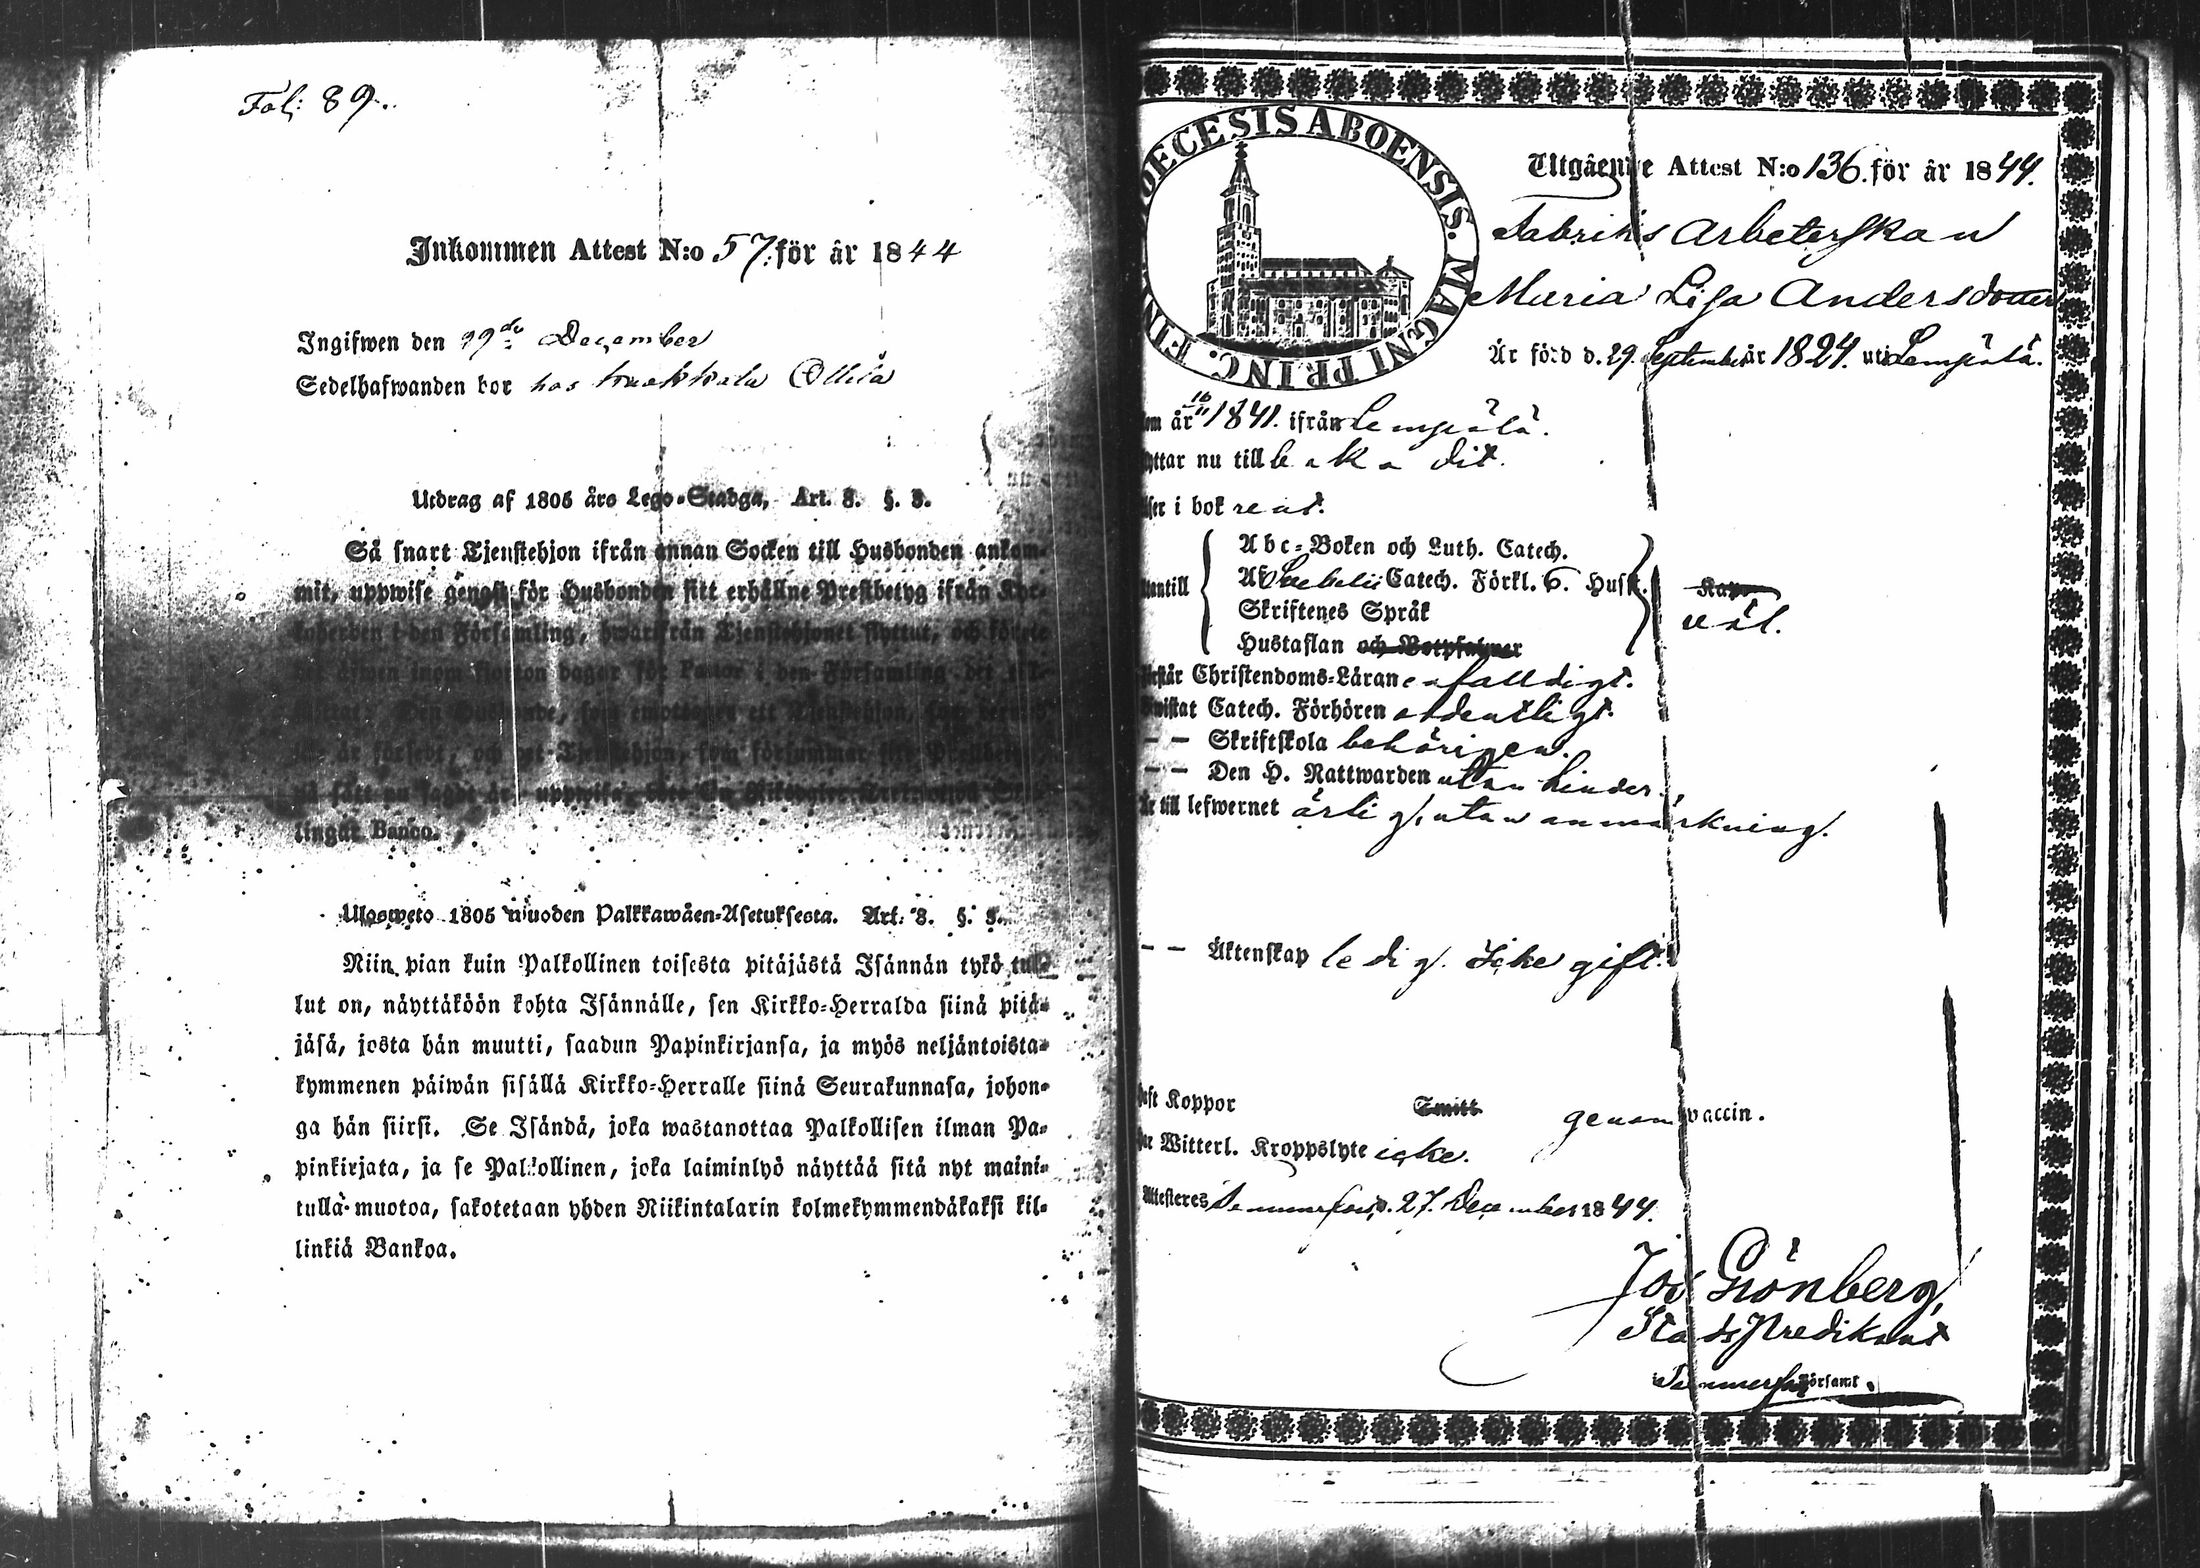 Fol: 89.
Inkommen Attest N:o 57. för år 1844
Ingifwen den 29de December
Sedelhafwanden bor hos Kuokkala Ollila
Utdrag af 1805 års Lego-Stadga, Art. 8. §. 3.
Så snart Tjenstehjon ifrån annan Socken till Husbonden ankom-
mit, uppwise genast för Husbonden sitt erhållne Prestbetyg ifrån Kyr-
koherden i den Församling, hwarifrån Tjenstehjonet flyttat, och
inom fjorton dagar för i den Församling
är försedt, och Tjenstehjon, som försummar
på sätt nu sagdt är, uppwise, böte En Riksdaler
lingar Banco.
Ulosweto 1805 wuoden Palkkawäen-Asetuksesta. Art. 8. §. 3.
Niin pian kuin Palkollinen toisesta pitäjästä Isännän tykö tul-
lut on, näyttäköön kohta Isännälle, sen Kirkko-Herralda siinä pitä-
jäsä, josta hän muutti, saadun Papinkirjansa, ja myös neljäntoista-
kymmenen päiwän sisällä Kirkko-Herralle siinä Seurakunnasa, johon-
ga hän siirsi. Se Isändä, joka wastanottaa Palkollisen ilman Pa-
pinkirjata, ja se Palkollinen, joka laiminlyö näyttää sitä nyt maini-
tullä muotoa, sakotetaan yhden Riikintalarin kolmekymmendäkaksi kil-
linkiä Bankoa.
OECESIS ABOENSIS. MAGNI PRINC. FIN
Utgående Attest N:o 136. för år 1844.
Fabriks Arbeterskan
Maria Lisa Andersdotter
Är född d. 29. September år 1824. uti Lempälä.
om år 16/11 1841. ifrån Lempälä.
yttar nu tillbaka dit.
äser i bok rent.
Abc-Boken och Luth. Catech.
antill Af Swebelii Catech. Förkl. 6. Hufst.
Skriftenes Språk
Hustaflan och Botpsalmer
väl.
rstår Christendoms-Läran enfalldigt.
wistat Catech. Förhören ordentligt.
– – Skriftskola behörigen.
– – Den H. Nattwarden utan hinder.
Är till lefwernet ärlig, utan anmärkning.
– – Äktenskap ledig. Icke gift.
aft Koppor Smitt genom vaccin.
ar Witterl. Kroppslyte icke.
Attesteres Tammerfors, d. 27. December 1844.
Jos Grönberg,
Stads Predikant
Tammerfors Församl.